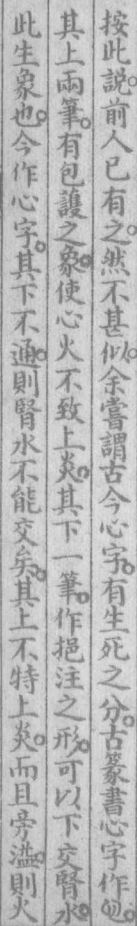 按此說前人已有之。然不甚似。余嘗謂古今心字。有生死之分。古篆書心字作
其上兩筆。有包護之象。使心火不致上炎。其下一筆。作挹注之形。可以下交腎水。
此生象也。今作心字。其下不通。則腎水不能交矣。其上不特上炎。而且旁溢。則火